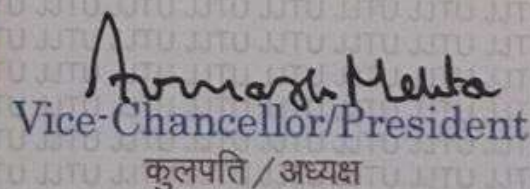 JJTU JJTU JJTU JJTU JJTU JJTU
Mehta
Vice-Chancellor/President
कुलपति / अध्यक्ष